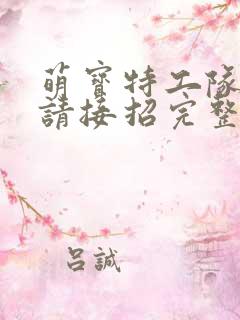 萌寶特工隊
請接招完整
呂誠